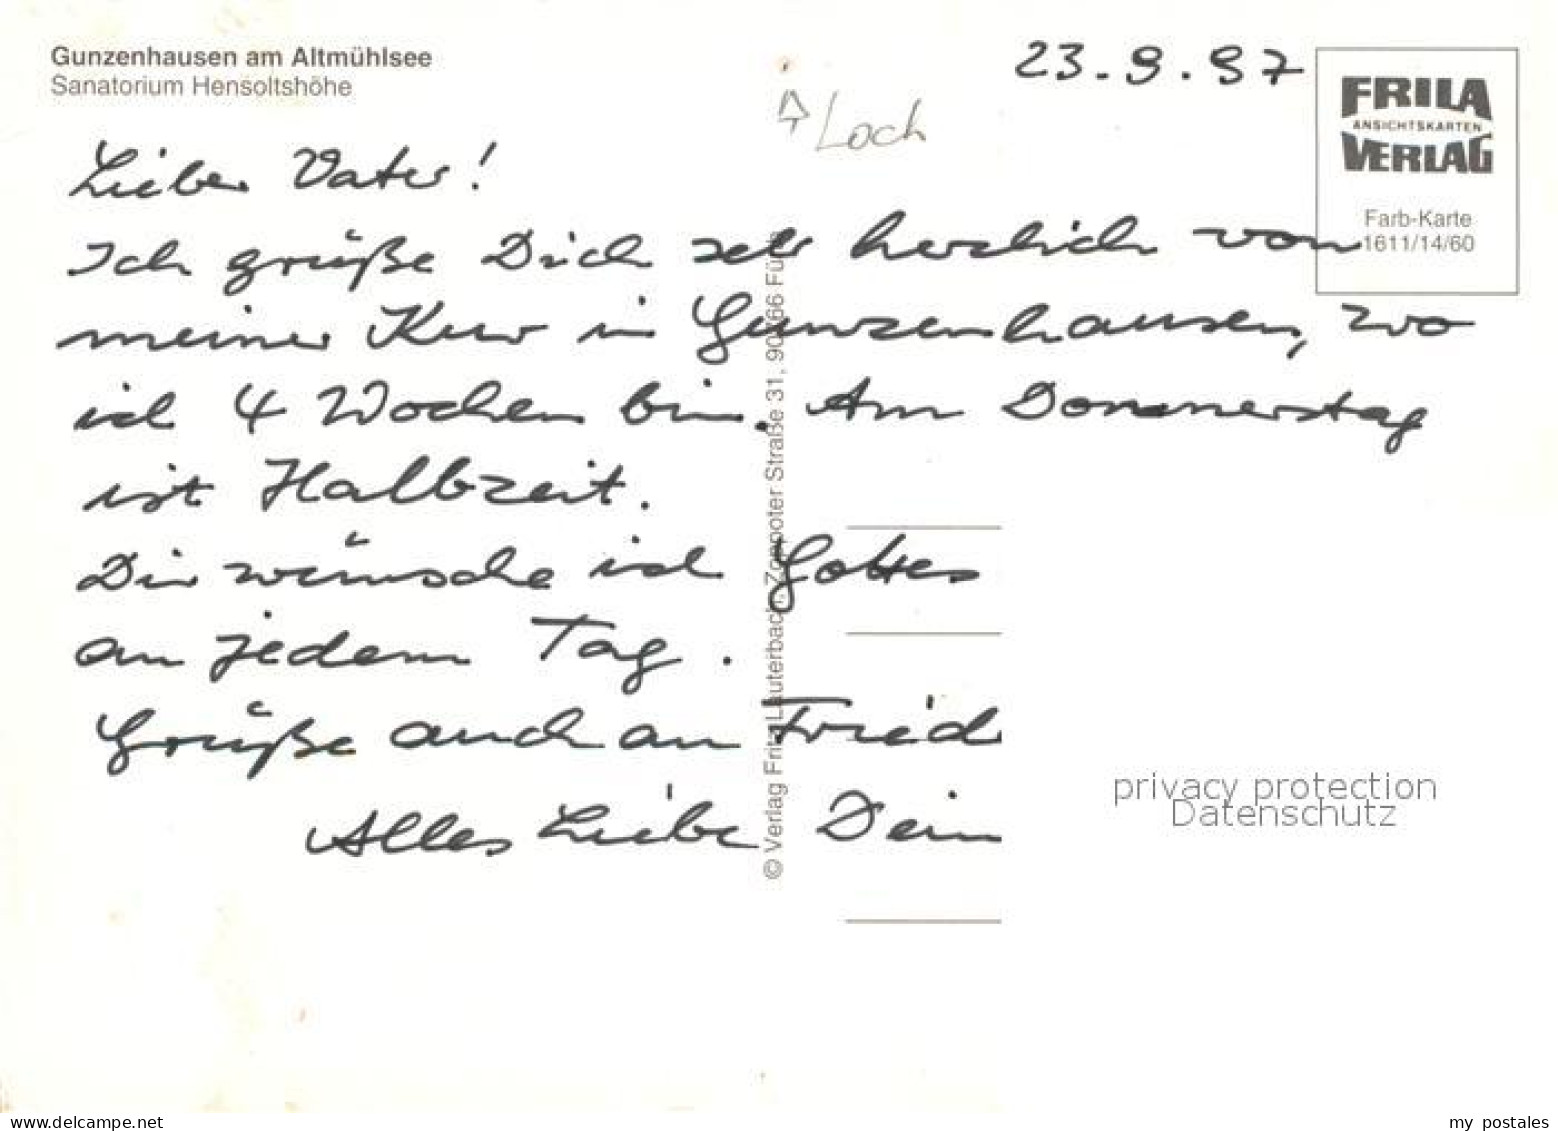 Gunzenhausen am Altmühlsee
Sanatorium Hensoltshöhe
23.9.97
FRILA
ANSICHTSKARTEN
VERLAG
Farb-Karte
1611/14/60
Loch
Lieber Vater!
Ich grüße Dich sehr herzlich von
meiner Kur in Gunzenhausen, wo
ich 4 Wochen bin. Am Donnerstag
ist Halbzeit.
Dir wünsche ich Gottes
an jedem Tag.
Grüße auch an Fried
Alles Liebe Dein
© Verlag Fritz Lauterbach, Zoppoter Straße 31, 90766 Fürth
privacy protection
Datenschutz
www.delcampe.net
my_postales